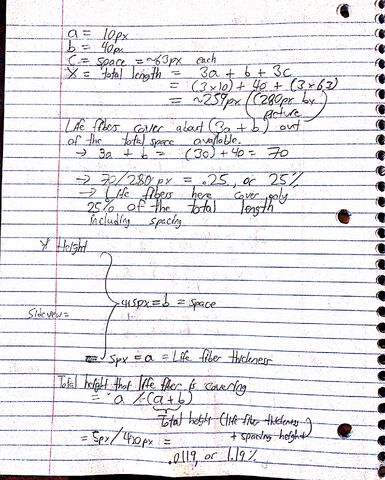 a = 10px
b = 40px
c = space = ~63px each
X = total length = 3a + b + 3c
= (3x10) + 40 + (3x63)
= ~259px (280px by picture)
Life fibers cover about (3a + b) out
of the total space available.
→ 3a + b = (30) + 40 = 70
→ 70/280px = .25, or 25%
→ Life fibers here cover only
25% of the total length
including spacing
* Height
415px = b = space
Sideview =
5px = a = Life fiber thickness
Total height that life fiber is covering
= a ÷ (a + b)
Total height (life fiber thickness
+ spacing height)
= 5px / 420px =
.0119, or 1.19%